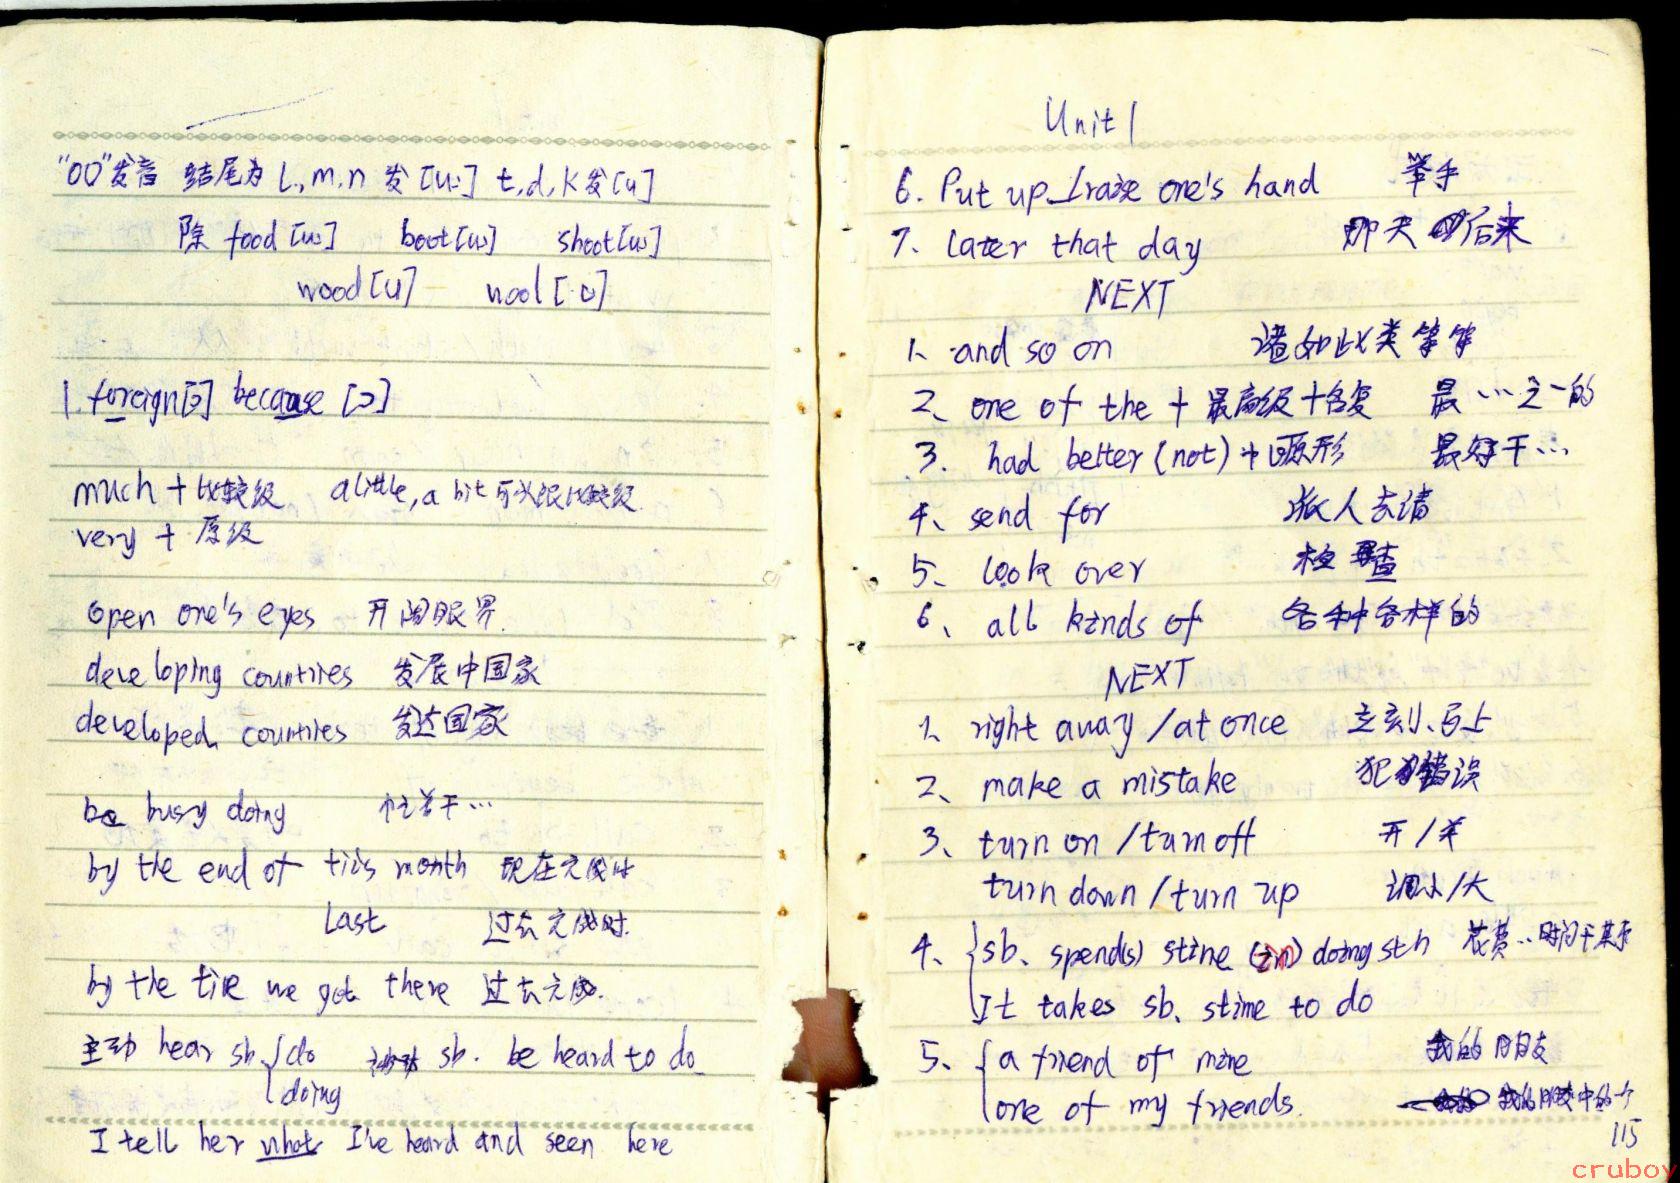 "oo"发音 结尾为 l, m, n 发 [u:] t, d, k 发 [u]
除 food [u:] boot [u:] shoot [u:]
wood [u] wool [u]
1. foreign [ɔ] because [ɔ]
much + 比较级 a little, a bit 可以跟比较级
very + 原级
open one's eyes 开阔眼界.
developing countires 发展中国家
developed countires 发达国家
be busy doing 忙着干…
by the end of this month 现在完成时
last 过去完成时.
by the time we got there 过去完成.
主动 hear sb. { do 被动 sb. be heard to do
doing
I tell her what I've heard and seen here
Unit 1
6. Put up / raise one's hand 举手
7. later that day 那天后来
NEXT
1、and so on 诸如此类等等
2、one of the + 最高级 + 名复 最…之一的
3. had better (not) + 原形 最好干…
4、send for 派人去请
5、look over 检查
6、all kinds of 各种各样的
NEXT
1、right away / at once 立刻、马上
2、make a mistake 犯错误
3、turn on / turn off 开 / 关
turn down / turn up 调小 / 大
4、{ sb. spend(s) stime (in) doing sth 花费…时间干某事
It takes sb. stime to do
5、{ a friend of mine 我的朋友
one of my friends. 我的朋友中的一个
115
cruboy